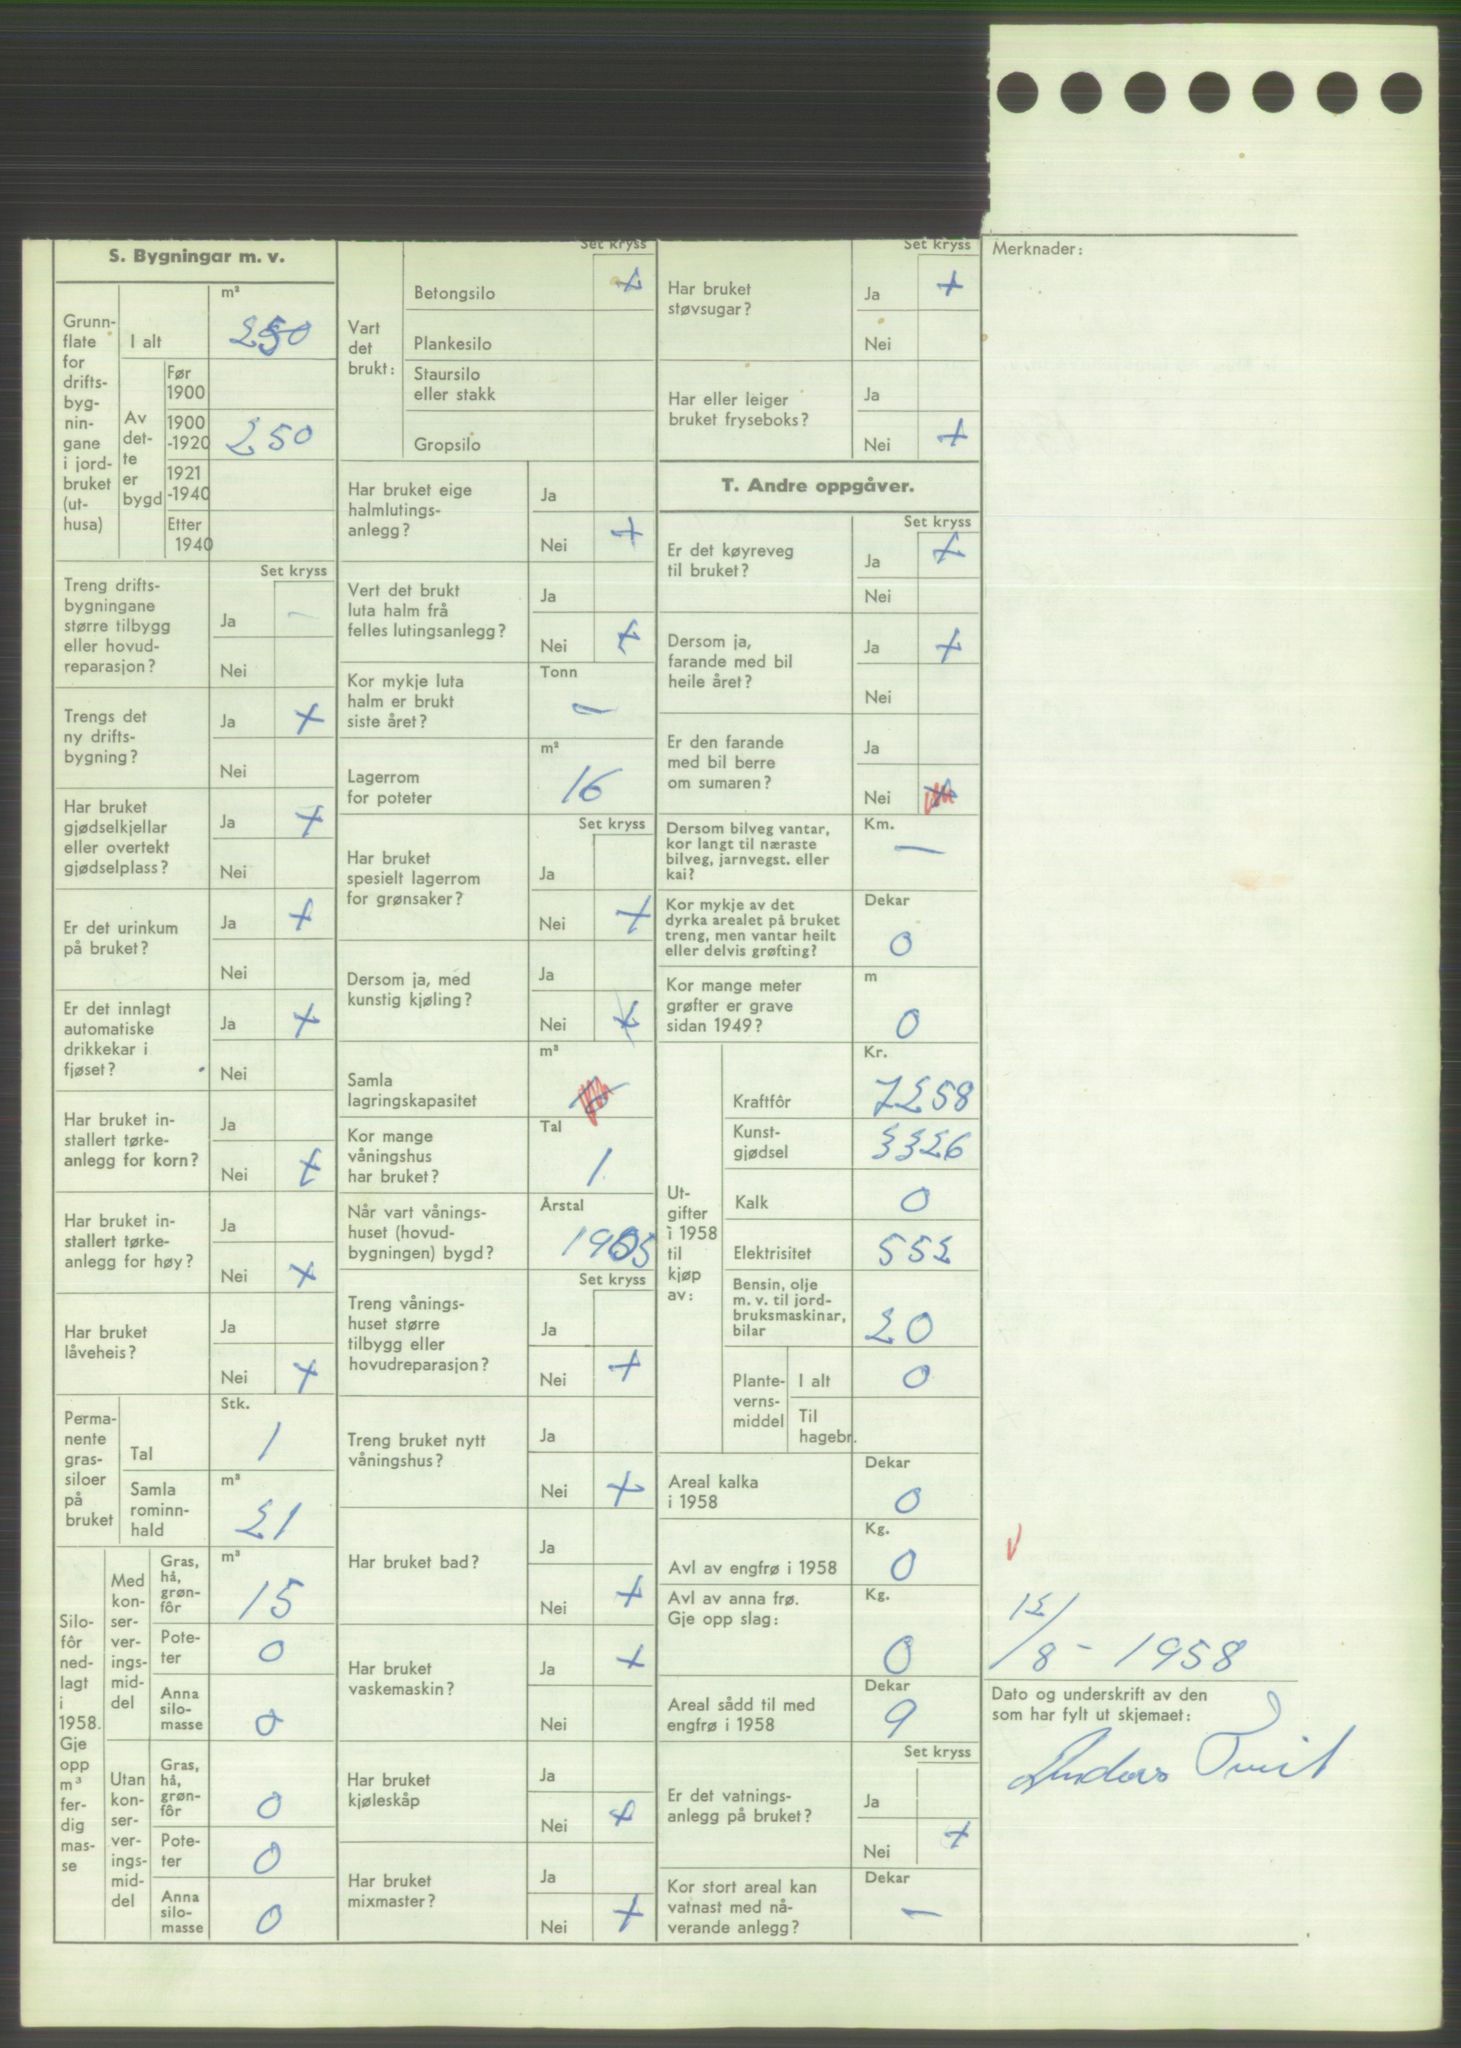 S. Bygningar m. v.
Grunn-
flate
for
drifts-
byg-
nin-
gane
i jord-
bruket
(ut-
husa)
I alt
m²
250
Av
det-
te
er
bygd
Før
1900
1900
-1920
250
1921
-1940
Etter
1940
Set kryss
Treng drifts-
bygningane
større tilbygg
eller hovud-
reparasjon?
Ja –
Nei
Trengs det
ny drifts-
bygning?
Ja +
Nei
Har bruket
gjødselkjellar
eller overtekt
gjødselplass?
Ja +
Nei
Er det urinkum
på bruket?
Ja +
Nei
Er det innlagt
automatiske
drikkekar i
fjøset?
Ja +
Nei
Har bruket in-
stallert tørke-
anlegg for korn?
Ja
Nei +
Har bruket in-
stallert tørke-
anlegg for høy?
Ja
Nei +
Har bruket
låveheis?
Ja
Nei +
Perma-
nente
gras-
siloer
på
bruket
Stk.
Tal 1
Samla
rominn-
hald
m³
21
Silo-
fôr
ned-
lagt
i
1958.
Gje
opp
m³
fer-
dig
mas-
se
Med
kon-
ser-
ver-
ings-
mid-
del
Gras,
hå,
grøn-
fôr
m³
15
Pote-
ter
0
Anna
silo-
masse
0
Utan
kon-
ser-
ver-
ings-
mid-
del
Gras,
hå,
grøn-
fôr
0
Pote-
ter
0
Anna
silo-
masse
0
Vart
det
brukt:
Set kryss
Betongsilo +
Plankesilo
Staursilo
eller stakk
Gropsilo
Har bruket eige
halmlutings-
anlegg?
Ja
Nei +
Vert det brukt
luta halm frå
felles lutingsanlegg?
Ja
Nei +
Kor mykje luta
halm er brukt
siste året?
Tonn
–
Lagerrom
for poteter
m²
16
Set kryss
Har bruket
spesielt lagerrom
for grønsaker?
Ja
Nei +
Dersom ja, med
kunstig kjøling?
Ja
Nei +
Samla
lagringskapasitet
m³
Kor mange
våningshus
har bruket?
Tal
1
Når vart vånings-
huset (hovud-
bygningen) bygd?
Årstal
Set kryss
Treng vånings-
huset større
tilbygg eller
hovudreparasjon?
Ja
Nei +
Treng bruket nytt
våningshus?
Ja
Nei +
Har bruket bad?
Ja
Nei +
Har bruket
vaskemaskin?
Ja +
Nei
Har bruket
kjøleskåp
Ja
Nei +
Har bruket
mixmaster?
Ja
Nei +
Set kryss
Har bruket
støvsugar?
Ja +
Nei
Har eller leiger
bruket fryseboks?
Ja
Nei +
T. Andre oppgåver.
Set kryss
Er det køyreveg
til bruket?
Ja +
Nei
Dersom ja,
farande med bil
heile året?
Ja +
Nei
Er den farande
med bil berre
om sumaren?
Ja
Nei +
Dersom bilveg vantar,
kor langt til næraste
bilveg, jarnvegst. eller
kai?
Km.
–
Kor mykje av det
dyrka arealet på bruket
treng, men vantar heilt
eller delvis grøfting?
Dekar
0
Kor mange meter
grøfter er grave
sidan 1949?
m
0
Ut-
gifter
i 1958
til
kjøp
av:
Kr.
Kraftfôr 7258
Kunst-
gjødsel
3326
Kalk 0
Elektrisitet 552
Bensin, olje
m. v. til jord-
bruksmaskinar,
bilar
20
Plante-
verns-
middel
I alt 0
Til
hagebr.
Areal kalka
i 1958
Dekar
0
Avl av engfrø i 1958
Kg.
0
Avl av anna frø.
Gje opp slag:
Kg.
0
Areal sådd til med
engfrø i 1958
Dekar
9
Set kryss
Er det vatnings-
anlegg på bruket?
Ja
Nei +
Kor stort areal kan
vatnast med nå-
verande anlegg?
Dekar
–
Merknader:
12/
/8 - 1958
Dato og underskrift av den
som har fylt ut skjemaet:
Anders